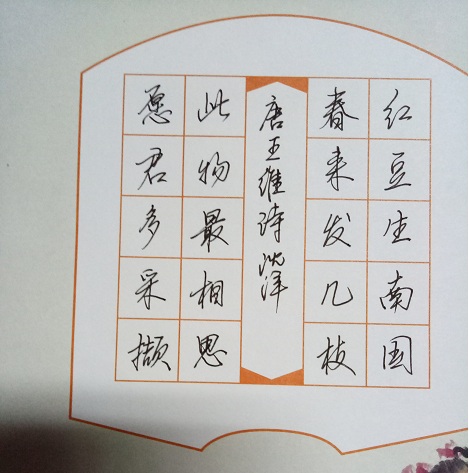 红豆生南国
春来发几枝
唐王维诗 沈洋
愿君多采撷
此物最相思